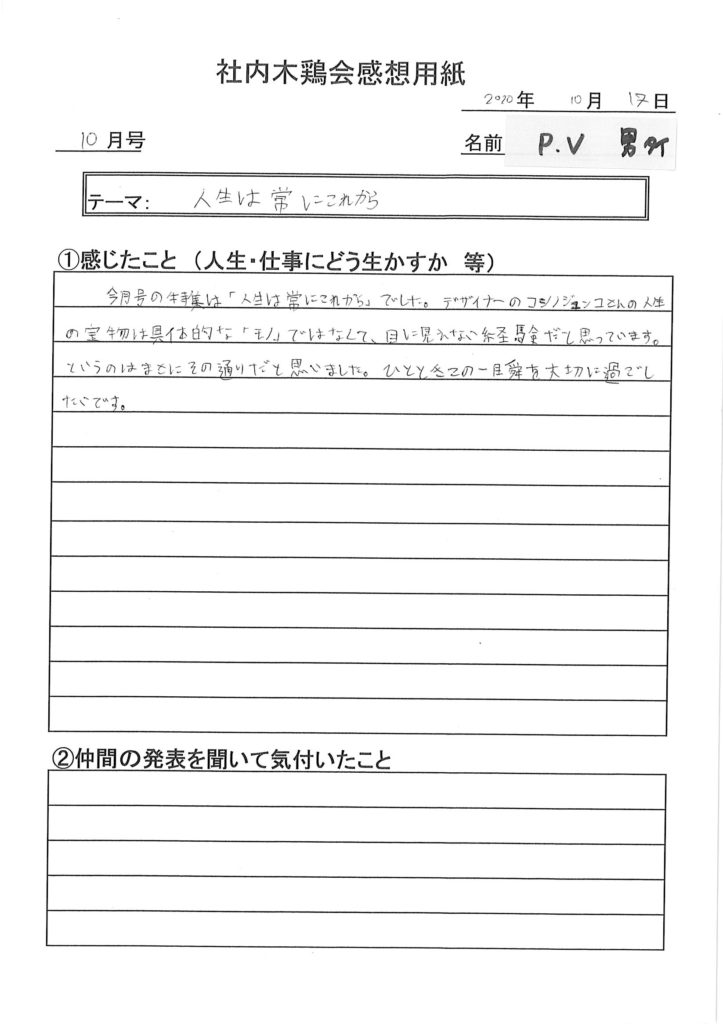 社内木鶏会感想用紙
2020年 10月 17日
10月号
名前 P.V 男タイ
テーマ: 人生は常にこれから
①感じたこと (人生・仕事にどう生かすか 等)
今月号の特集は「人生は常にこれから」でした。デザイナーのコシノジュンコさんの人生
の宝物は具体的な「モノ」ではなくて、目に見えない経験だと思っています。
というのはまさにその通りだと思いました。ひとときの一瞬を大切に過ごし
たいです。
②仲間の発表を聞いて気付いたこと